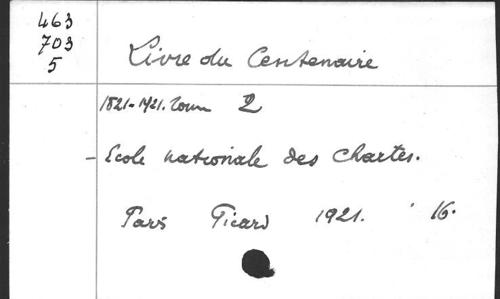 463
703
5
Livre du Centenaire
1821-1921. Tom 2
- Ecole nationale des Chartes.
Paris Picard 1921. 16.